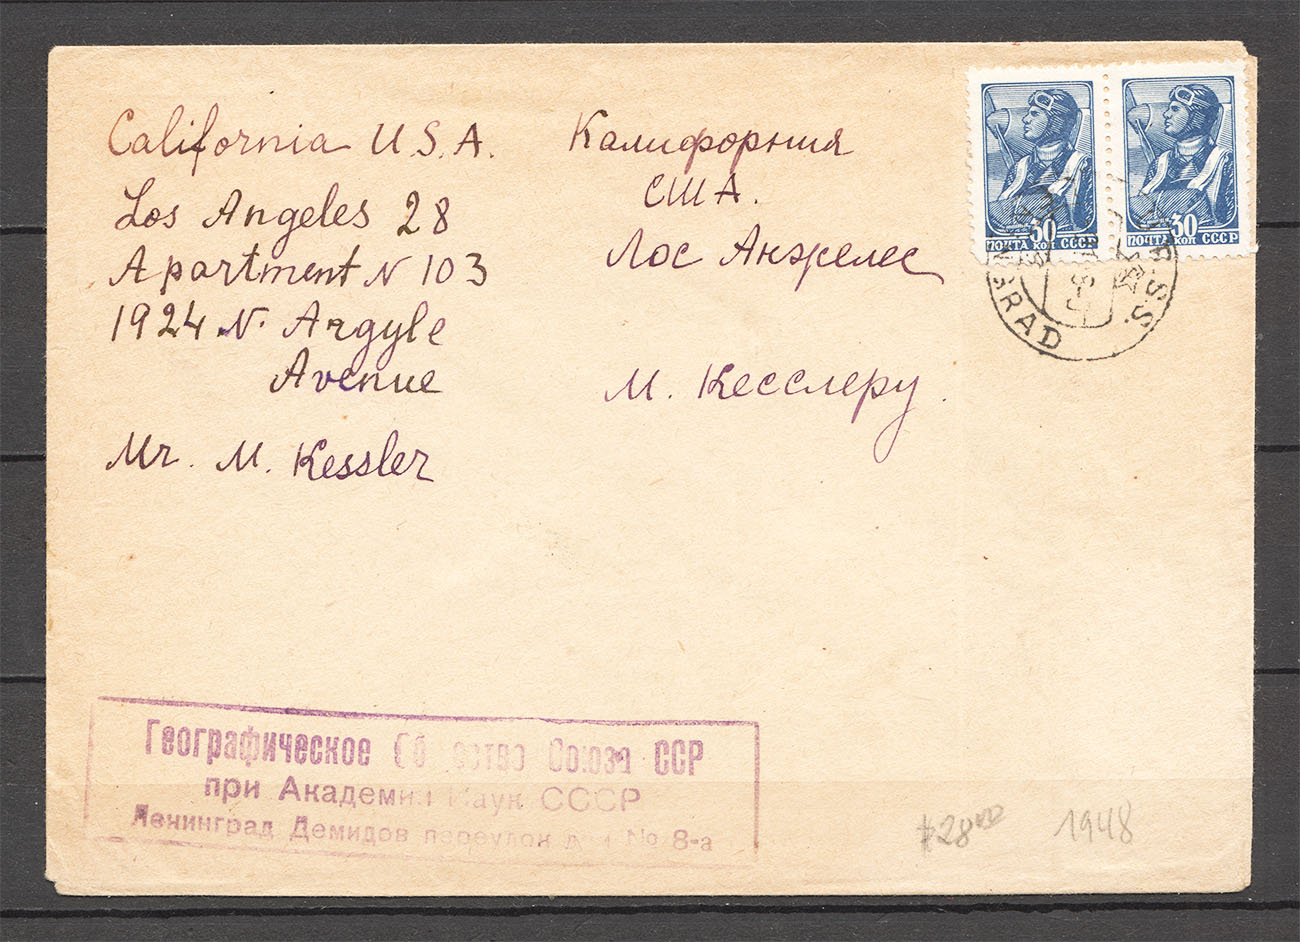 California U.S.A.
Los Angeles 28
Apartment N 103
1924 N. Argyle
Avenue
Mr. M. Kessler
Калифорния
США.
Лос Анжелес
М. Кесслеру.
30
ПОЧТА КОП СССР
30
ПОЧТА КОП СССР
GRAD
S.S.
Географическое Союза ССР
при Академии Наук СССР
Ленинград Демидов переулок No 8-а
$28
1948